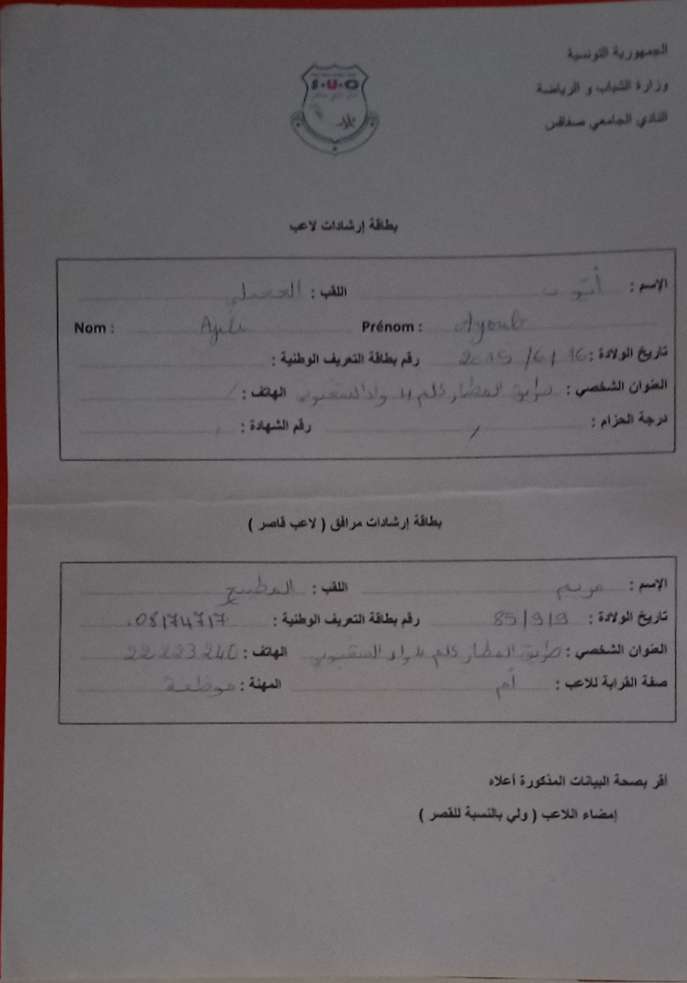 الجمهورية التونسية
وزارة الشباب و الرياضة
النادي الجامعي صفاقس
S.U.C
بطاقة إرشادات لاعب
الإسم : أيوب اللقب :
Nom : Ajili Prénom : Ayoub
تاريخ الولادة : 16/6/2015 رقم بطاقة التعريف الوطنية :
العنوان الشخصي : طريق المطار كلم الهاتف : /
درجة الحزام : / رقم الشهادة :
بطاقة إرشادات مرافق ( لاعب قاصر )
الإسم : مريم اللقب :
تاريخ الولادة : 85/9/9 رقم بطاقة التعريف الوطنية : 08174717
العنوان الشخصي : طريق المطار كلم الهاتف : 22223240
صفة القرابة للاعب : أم المهنة : موظفة
أقر بصحة البيانات المذكورة أعلاه
إمضاء اللاعب ( ولي بالنسبة للقصر )